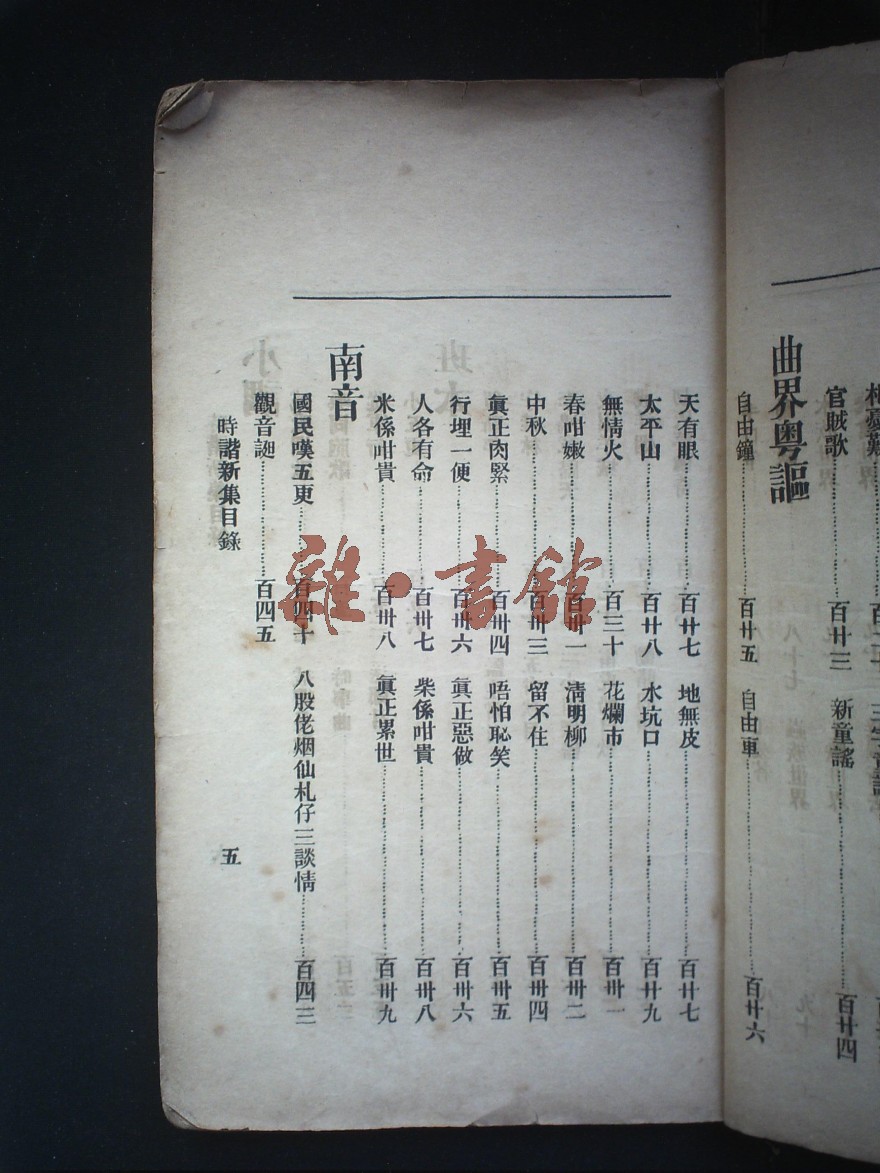 官賊歌 百廿三 新童謠 百廿四
曲界粵謳
自由鐘 百廿五 自由車 百廿六
天有眼 百廿七 地無皮 百廿七
太平山 百廿八 水坑口 百廿九
無情火 百三十 花爛市 百卅一
春咁嫩 百卅一 清明柳 百卅二
中秋 百卅三 留不住 百卅四
眞正肉緊 百卅四 唔怕恥笑 百卅五
行埋一便 百卅六 眞正惡做 百卅六
人各有命 百卅七 柴係咁貴 百卅八
米係咁貴 百卅八 眞正累世 百卅九
南音
國民嘆五更 百四十 八股佬烟仙札仔三談情 百四三
觀音謎 百四五
時諧新集目錄 五
雜·書館